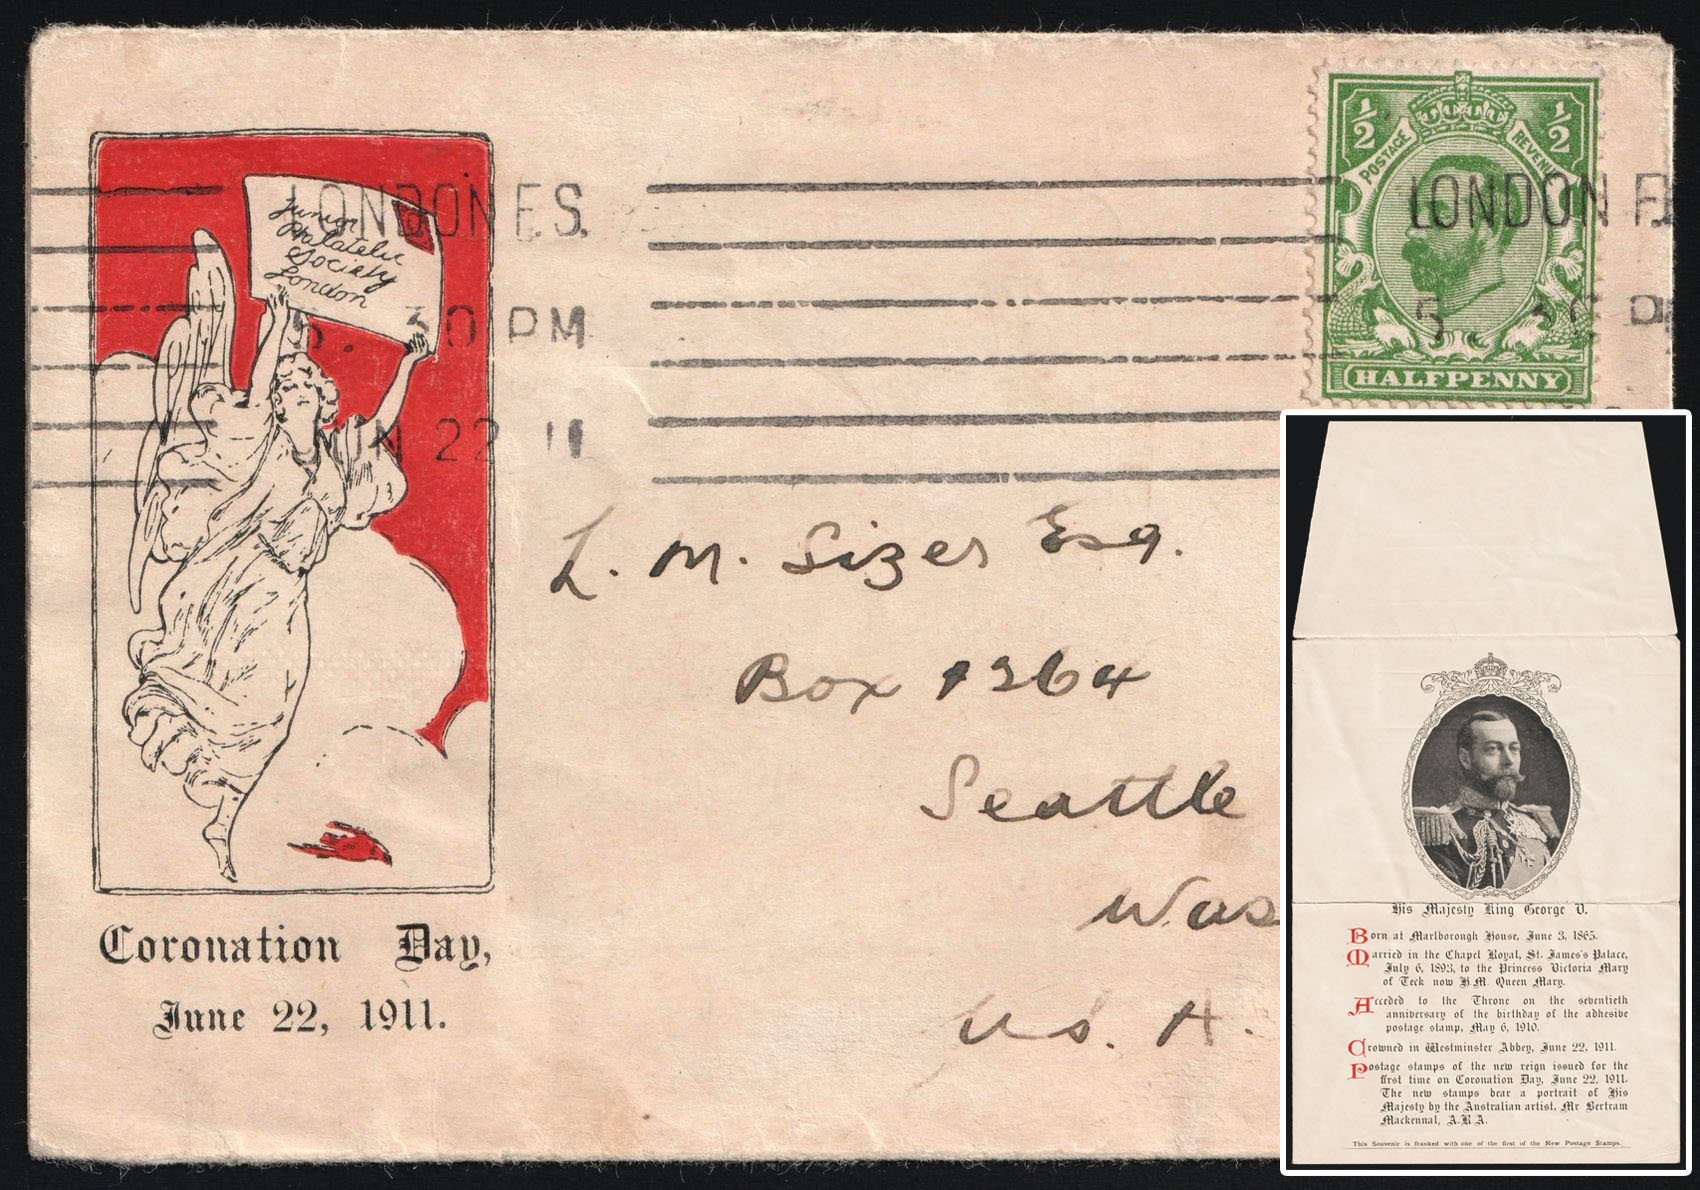 ½ ½
POSTAGE REVENUE
LONDON F.S.
LONDON F.
Junior
Philatelic
Society
London
5. 30 PM
5. 30 P
JUN 22 11
HALFPENNY
L. M. Sizer Esq.
Box 1364
Seattle
Was
U.S. A.
Coronation Day,
June 22, 1911.
His Majesty King George V.
Born at Marlborough House, June 3, 1865.
Married in the Chapel Royal, St. James's Palace,
July 6, 1893, to the Princess Victoria Mary
of Teck now H.M. Queen Mary.
Acceded to the Throne on the seventieth
anniversary of the birthday of the adhesive
postage stamp, May 6, 1910.
Crowned in Westminster Abbey, June 22, 1911.
Postage stamps of the new reign issued for the
first time on Coronation Day, June 22, 1911.
The new stamps bear a portrait of His
Majesty by the Australian artist, Mr Bertram
Mackennal, A.R.A.
This Souvenir is franked with one of the first of the New Postage Stamps.